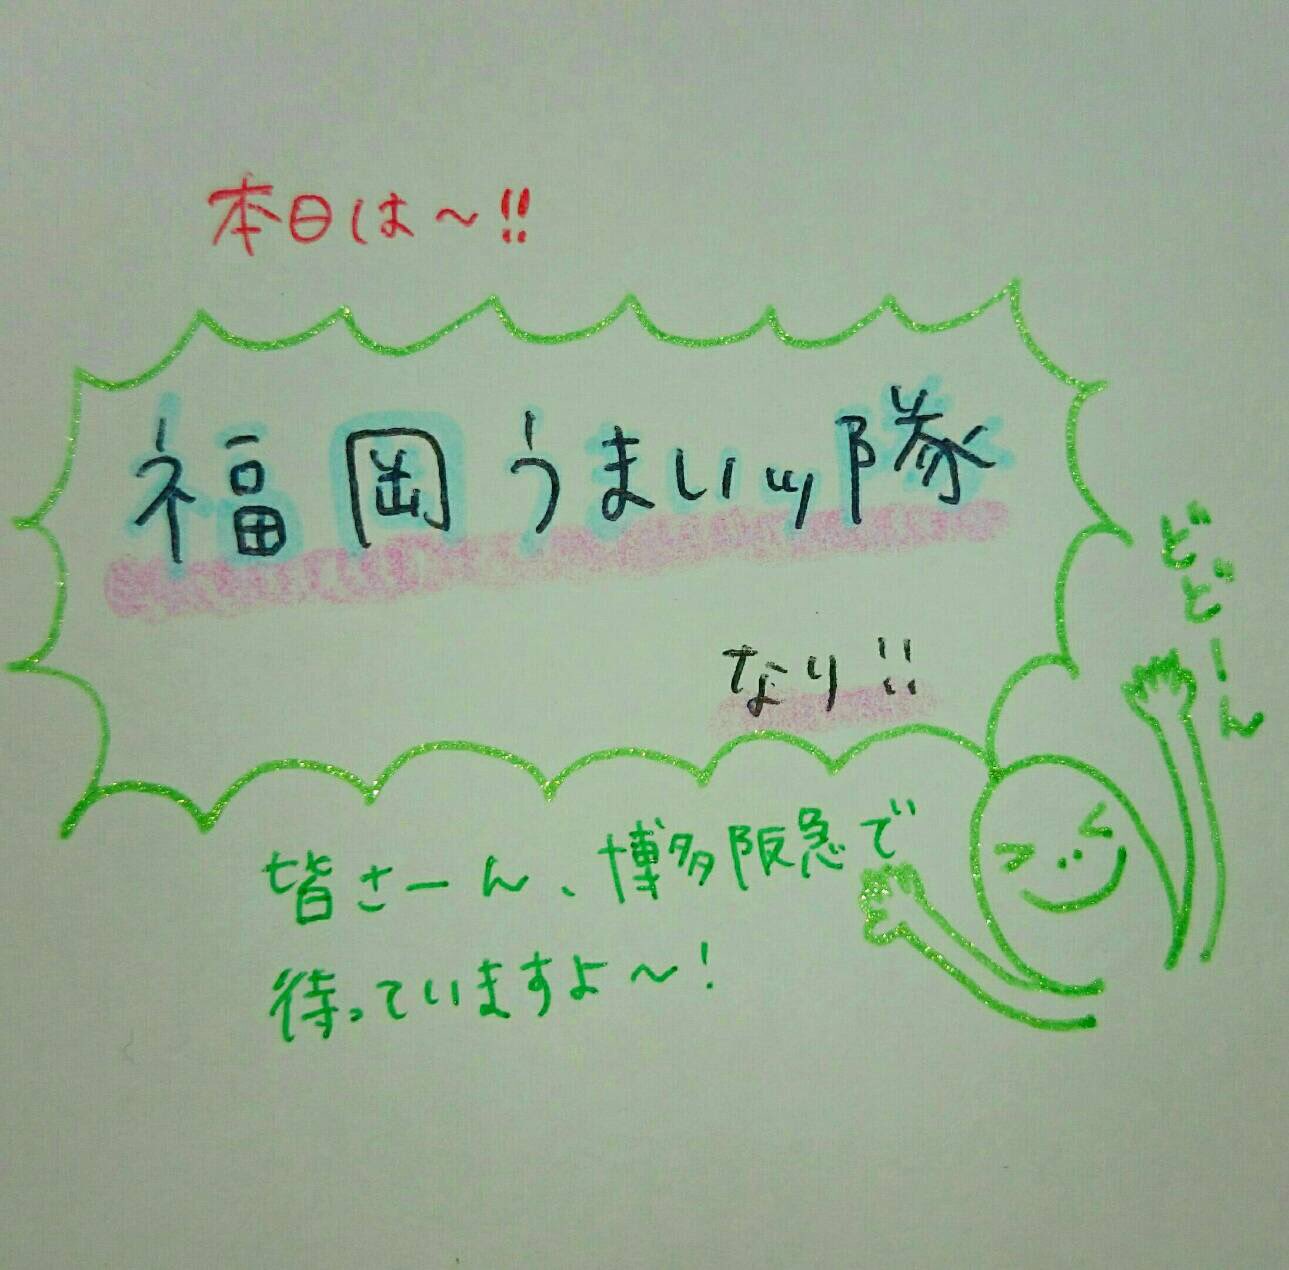 本日は〜!!
福岡うまいッ隊
なり!!
どどーん
皆さーん、博多阪急で
待っていますよ〜!